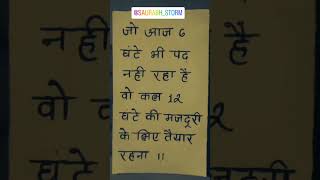 @SAURABH_STORM
जो आज 6
घंटे भी पढ
नही रहा है
वो कल 12
घटे की मजदूरी
के लिए तैयार
रहना ।।